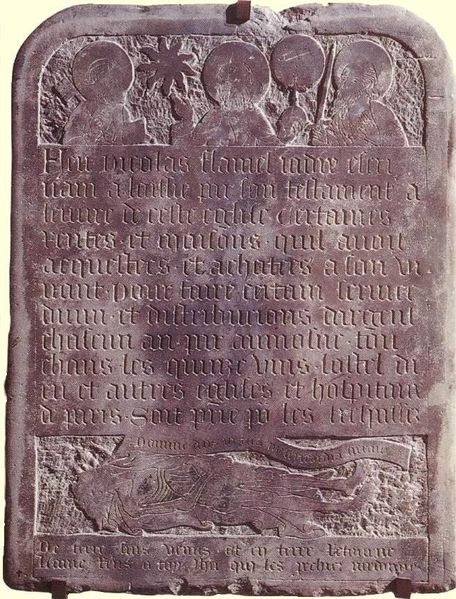 Feu nicolas flamel iadiz escri
uain a laissie par son testament a
leuure de ceste eglise certaines
rentes et maisons quil auoit
acquestees et achatees a son vi
uant pour faire certain seruice
diuin et distribucions dargent
chascun an par aumosne tou
chans les quinze vins lostel di
eu et autres eglises et hospitaux
a paris Soit prie po les trespassez
Domine deus in tua misericordia speraui
De terre suis venus et en terre retourne
lame rens a toy qui les pechiez pardonne